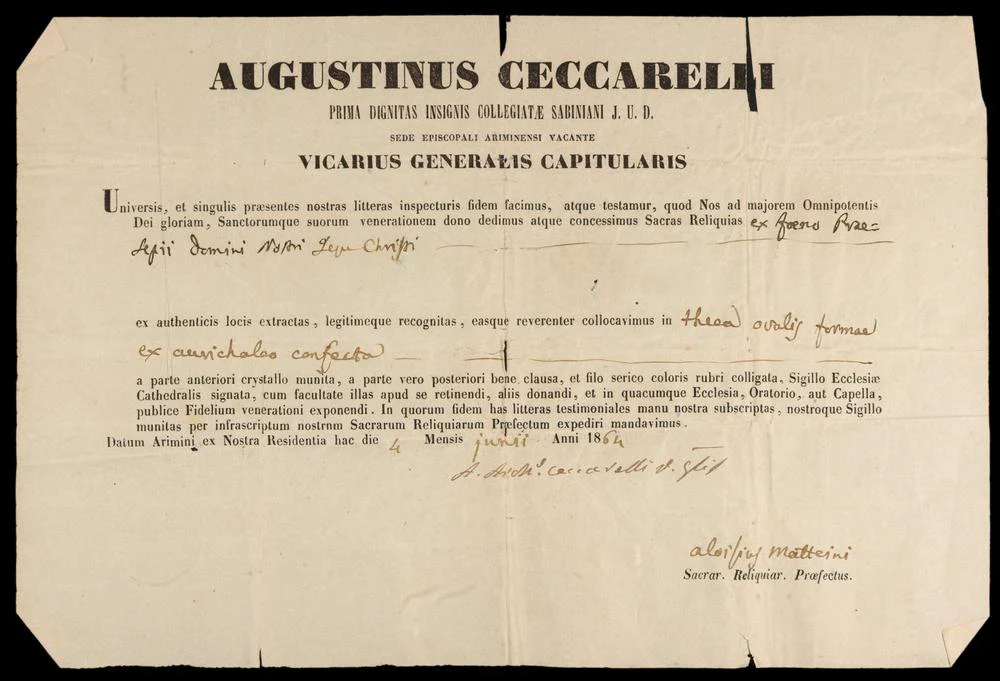 AUGUSTINUS CECCARELLI
PRIMA DIGNITAS INSIGNIS COLLEGIATÆ SABINIANI J. U. D.
SEDE EPISCOPALI ARIMINENSI VACANTE
VICARIUS GENERALIS CAPITULARIS
Universis, et singulis præsentes nostras litteras inspecturis fidem facimus, atque testamur, quod Nos ad majorem Omnipotentis
Dei gloriam, Sanctorumque suorum venerationem dono dedimus atque concessimus Sacras Reliquias ex foeno Prae=
sepii Domini Nostri Jesu Christi
ex authenticis locis extractas, legitimeque recognitas, easque reverenter collocavimus in theca ovalis formae
ex aurichalco confecta
a parte anteriori crystallo munita, a parte vero posteriori bene clausa, et filo serico coloris rubri colligata, Sigillo Ecclesiæ
Cathedralis signata, cum facultate illas apud se retinendi, aliis donandi, et in quacumque Ecclesia, Oratorio, aut Capella,
publice Fidelium venerationi exponendi. In quorum fidem has litteras testimoniales manu nostra subscriptas, nostroque Sigillo
munitas per infrascriptum nostrnm Sacrarum Reliquiarum Præfectum expediri mandavimus.
Datum Arimini ex Nostra Residentia hac die 4 Mensis junii Anni 1864
A. Ceccarelli V.
Aloisius Matteini
Sacrar. Reliquiar. Præfectus.